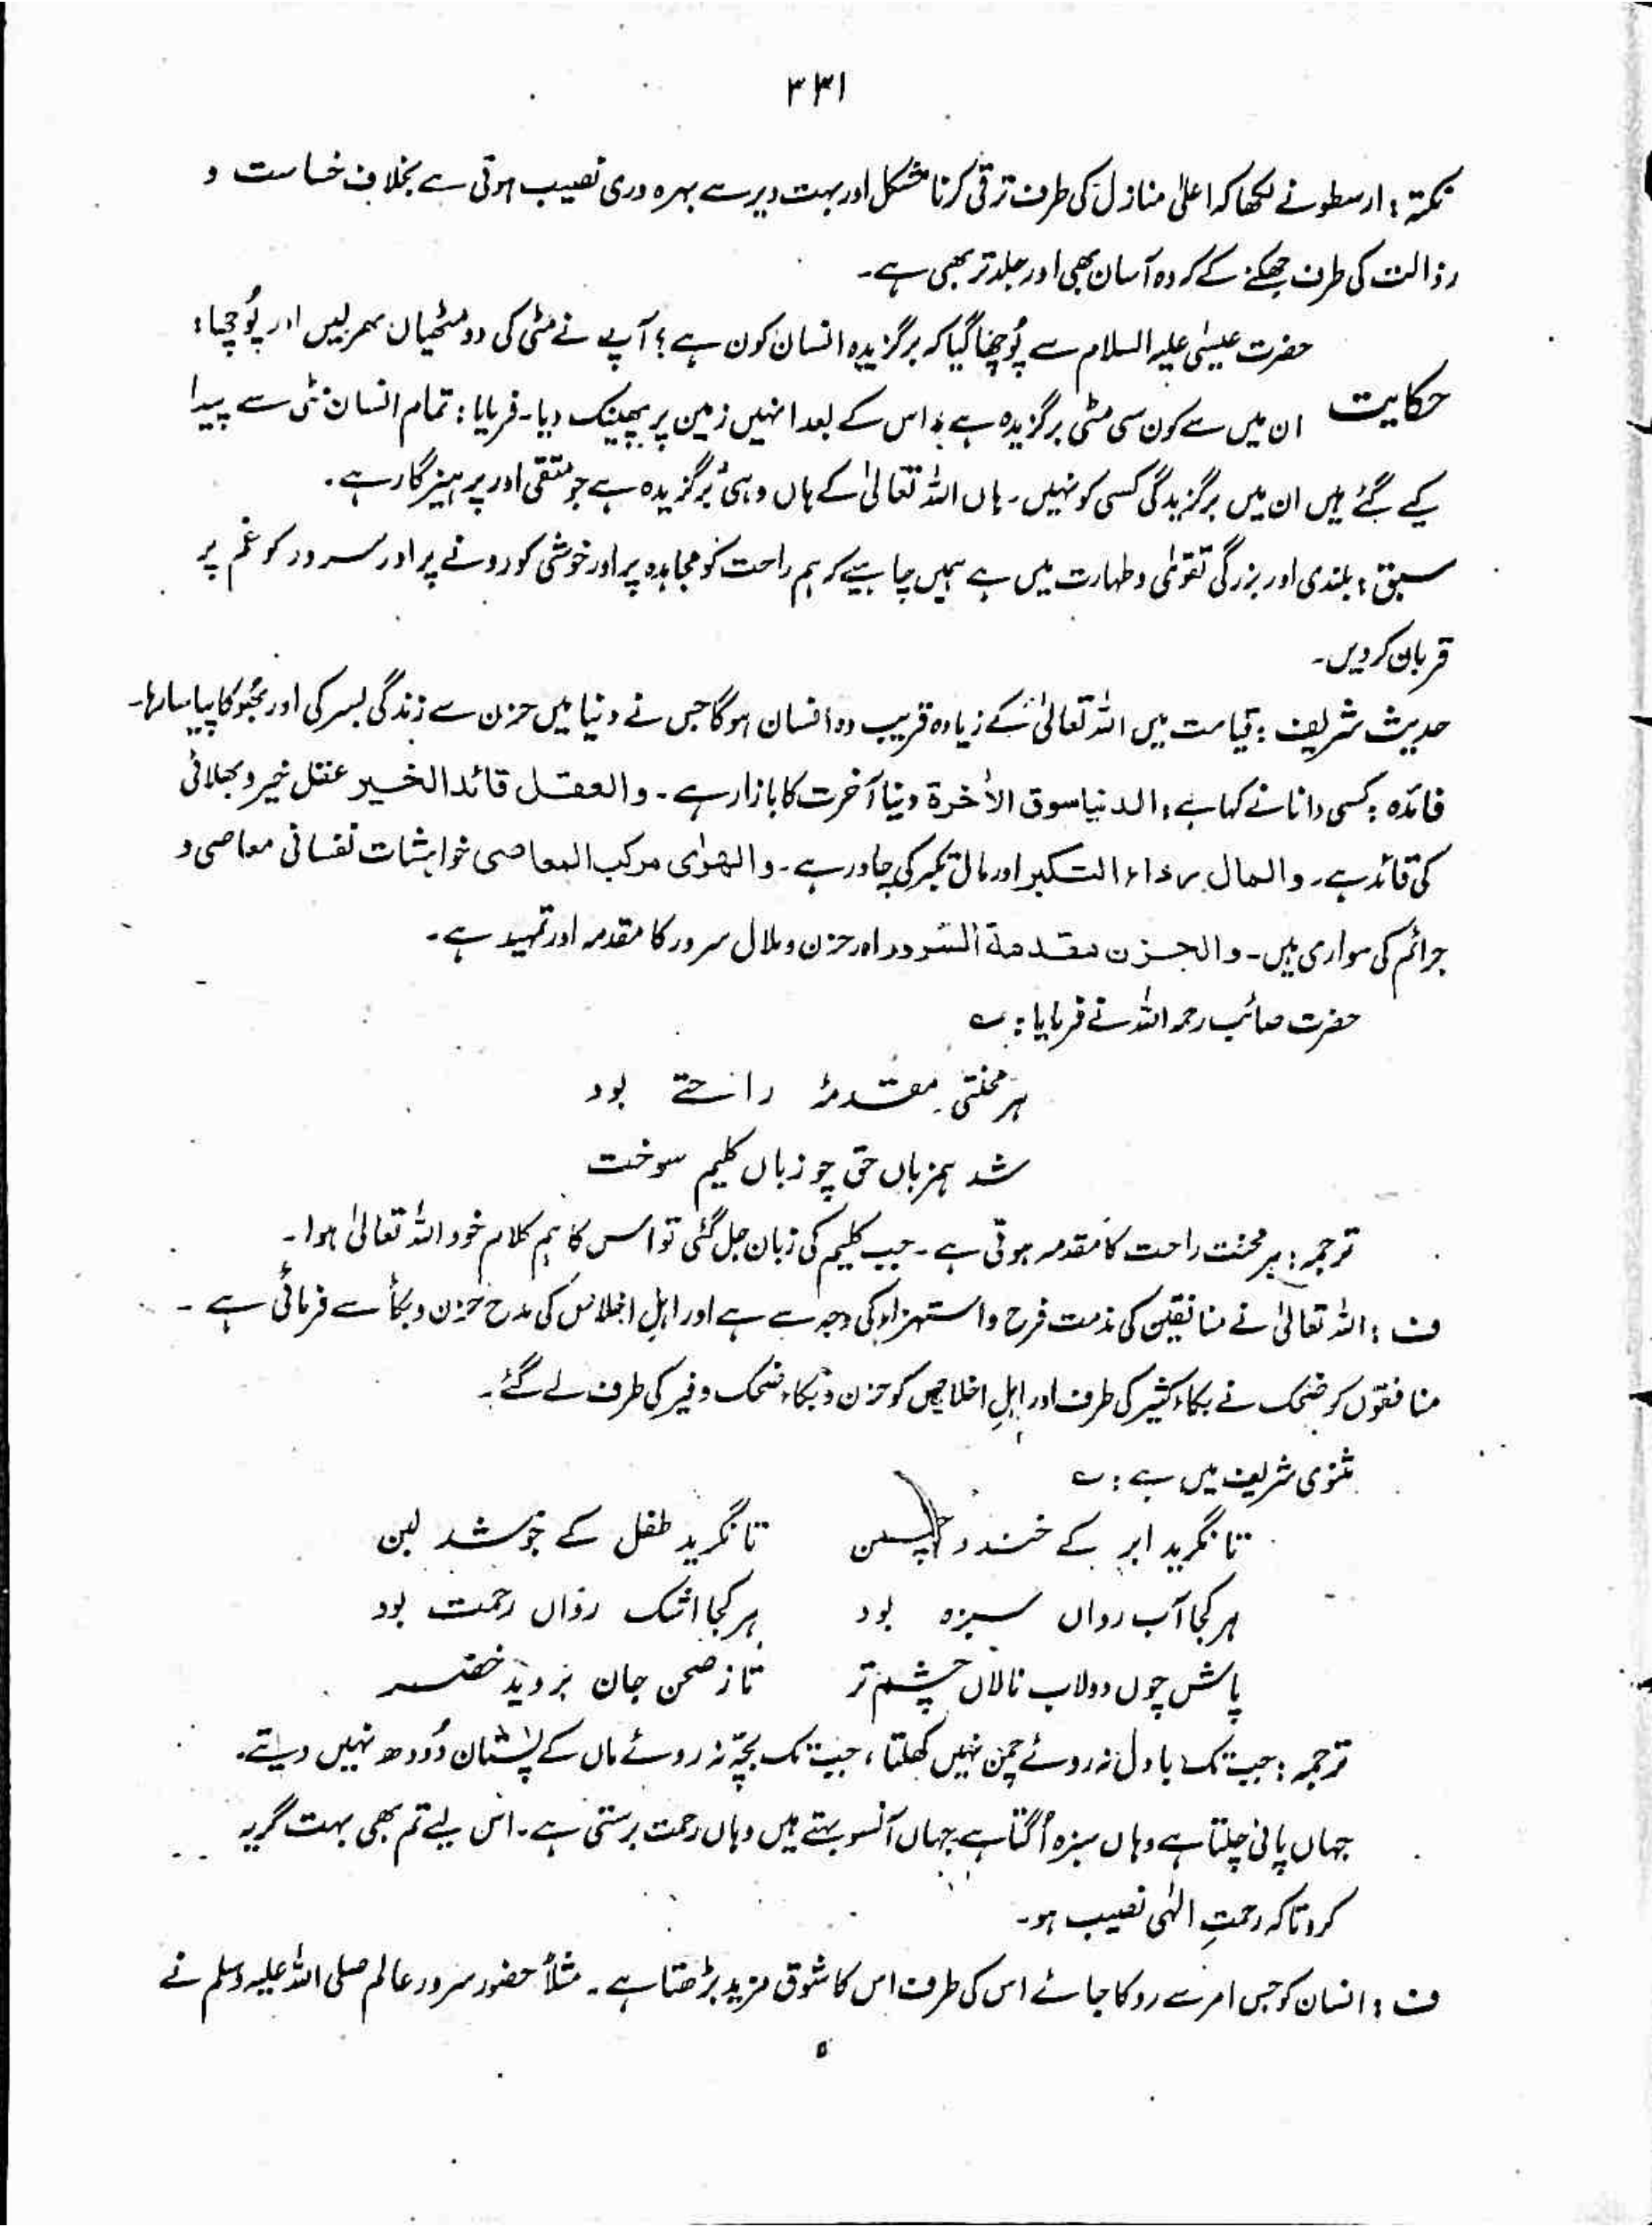 ۳۳۱
نکتہ : ارسطو نے لکھا کہ اعلیٰ منازل کی طرف ترقی کرنا مشکل اور بہت دیر سے بہرہ وری نصیب ہوتی ہے بخلاف خساست و
رذالت کی طرف جھکنے کے کہ وہ آسان بھی اور جلد تر بھی ہے۔
حضرت عیسیٰ علیہ السلام سے پُوچھا گیا کہ برگزیدہ انسان کون ہے ؟ آپ نے مٹی کی دو مٹھیاں بھر لیں اور پُوچھا :
حکایت ان میں سے کون سی مٹی برگزیدہ ہے ؛ اس کے بعد انہیں زمین پر پھینک دیا۔ فرمایا : تمام انسان مٹی سے پیدا
کیے گئے ہیں ان میں برگزیدگی کسی کو نہیں۔ ہاں اللہ تعالیٰ کے ہاں وہی برگزیدہ ہے جو متقی اور پرہیزگار ہے۔
سبق : بلندی اور بزرگی تقویٰ و طہارت میں ہے ہمیں چاہیے کہ ہم راحت کو مجاہدہ پر اور خوشی کو رونے پر اور سرور کو غم پر
قربان کر دیں۔
حدیث شریف : قیامت میں اللہ تعالیٰ کے زیادہ قریب وہ انسان ہو گا جس نے دنیا میں حزن سے زندگی بسر کی اور بھُوکا پیاسا رہا۔
فائدہ : کسی دانا نے کہا ہے : الدنیا سوق الاٰخرۃ دنیا آخرت کا بازار ہے۔ والعقل قائد الخیر عقل خیر و بھلائی
کی قائد ہے۔ والمال رداء التکبر اور مال تکبر کی چادر ہے۔ والھوٰی مرکب المعاصی خواہشات نفسانی معاصی و
جرائم کی سواری ہیں۔ والحزن مقدمۃ السّرور اور حزن و ملال سرور کا مقدمہ اور تمہید ہے۔
حضرت صائب رحمہ اللہ نے فرمایا : ؎
ہر محنتی مقدمۂ راحتے بود
شد ہمزباں حق چو زباں کلیم سوخت
ترجمہ : ہر محنت راحت کا مقدمہ ہوتی ہے۔ جب کلیم کی زبان جل گئی تو اس کا ہم کلام خود اللہ تعالیٰ ہوا۔
ف : اللہ تعالیٰ نے منافقین کی مذمت فرح و استہزاء کی وجہ سے ہے اور اہلِ اخلاص کی مدح حزن و بکاء سے فرمائی ہے۔
منافقوں کو ضحک نے بکاء کثیر کی طرف اور اہلِ اخلاص کو حزن و بکاء ضحک وفیر کی طرف لے گئے۔
مثنوی شریف میں ہے : ؎
تا نگرید ابر کے خندد چمن تا نگرید طفل کے جوشد لبن
ہر کجا آب رواں سبزہ بود ہر کجا اشک رواں رحمت بود
باش چوں دولاب نالاں چشم تر تا ز صحن جان بر دید خضر
ترجمہ : جب تک بادل نہ روئے چمن نہیں کھلتا ، جب تک بچّہ نہ روئے ماں کے پستان دُودھ نہیں دیتے۔
جہاں پانی چلتا ہے وہاں سبزہ اُگتا ہے جہاں آنسو بہتے ہیں وہاں رحمت برستی ہے۔ اس لیے تم بھی بہت گریہ
کرو تاکہ رحمتِ الٰہی نصیب ہو۔
ف : انسان کو جس امر سے روکا جائے اس کی طرف اس کا شوق مزید بڑھتا ہے۔ مثلاً حضور سرور عالم صلی اللہ علیہ وسلم نے